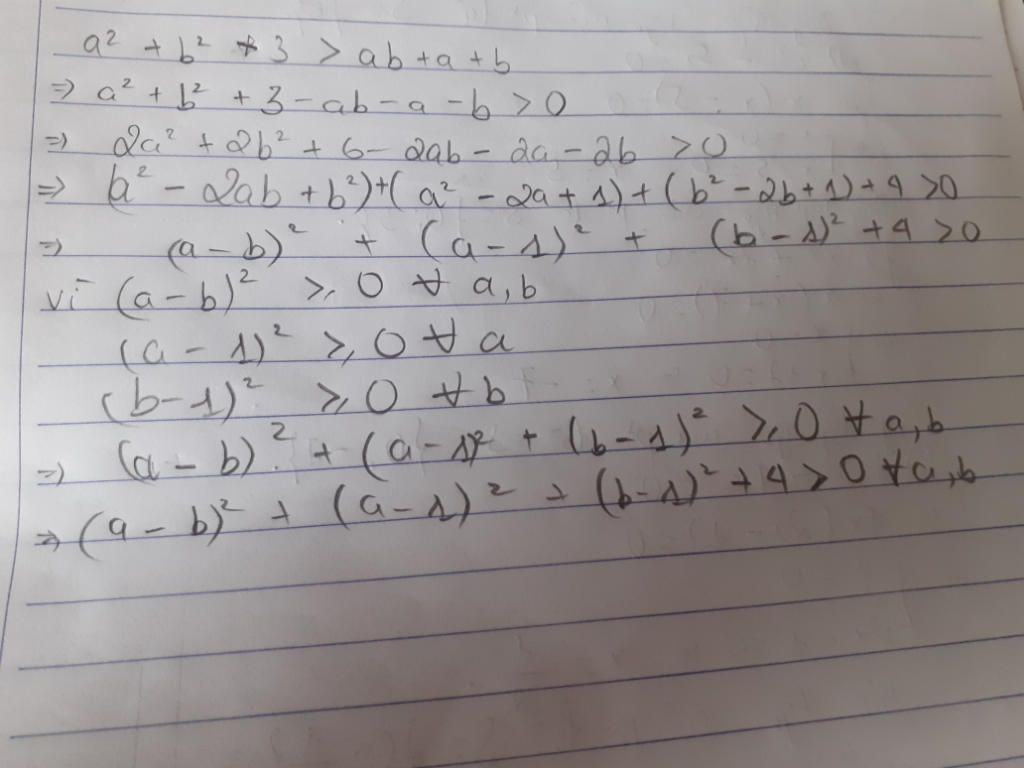 a² + b² + 3 > ab + a + b
=> a² + b² + 3 - ab - a - b > 0
=> 2a² + 2b² + 6 - 2ab - 2a - 2b > 0
=> (a² - 2ab + b²) + (a² - 2a + 1) + (b² - 2b + 1) + 4 > 0
=> (a - b)² + (a - 1)² + (b - 1)² + 4 > 0
vì (a - b)² ≥ 0 ∀ a, b
(a - 1)² ≥ 0 ∀ a
(b - 1)² ≥ 0 ∀ b
=> (a - b)² + (a - 1)² + (b - 1)² ≥ 0 ∀ a, b
=> (a - b)² + (a - 1)² + (b - 1)² + 4 > 0 ∀ a, b